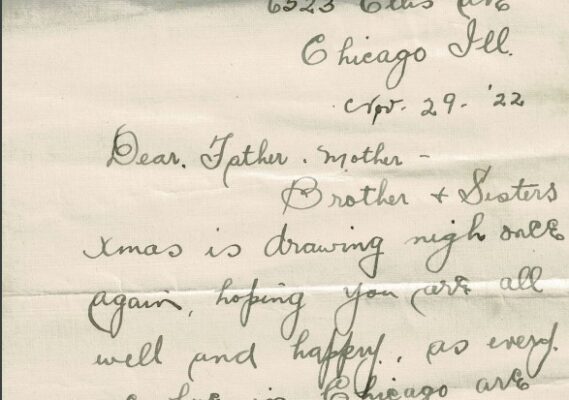 6523 Ellis Ave
Chicago Ill.
Nov. 29. '22
Dear. Father. Mother -
Brother + Sisters
Xmas is drawing nigh once
again, hoping you are all
well and happy, as every
in Chicago are